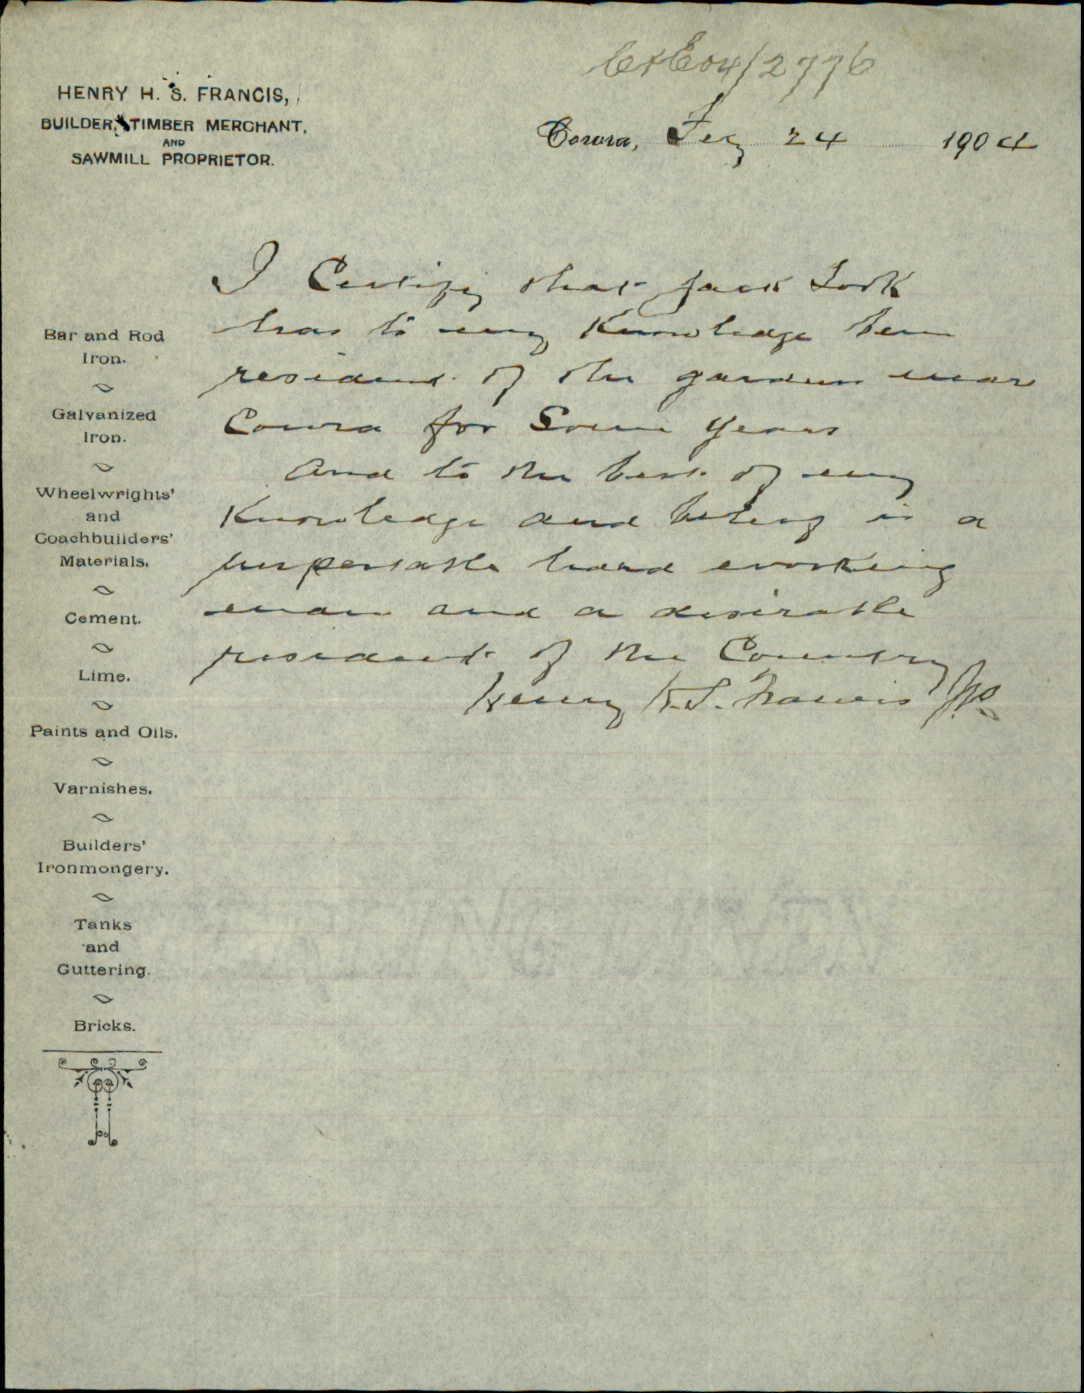 C&E04/2776
HENRY H. S. FRANCIS,
BUILDER, TIMBER MERCHANT,
AND
SAWMILL PROPRIETOR.
Cowra, Feby 24 1904
I Certify that Jack
has to my Knowledge been
resident of the garden near
Cowra for Some years
and to the best of my
Knowledge and belief is a
respectable hard working
man and a desirable
resident of the Country
Henry H.S. Francis JP.
Bar and Rod
Iron.
Galvanized
Iron.
Wheelwrights'
and
Coachbuilders'
Materials.
Cement.
Lime.
Paints and Oils.
Varnishes.
Builders'
Ironmongery.
Tanks
and
Guttering.
Bricks.